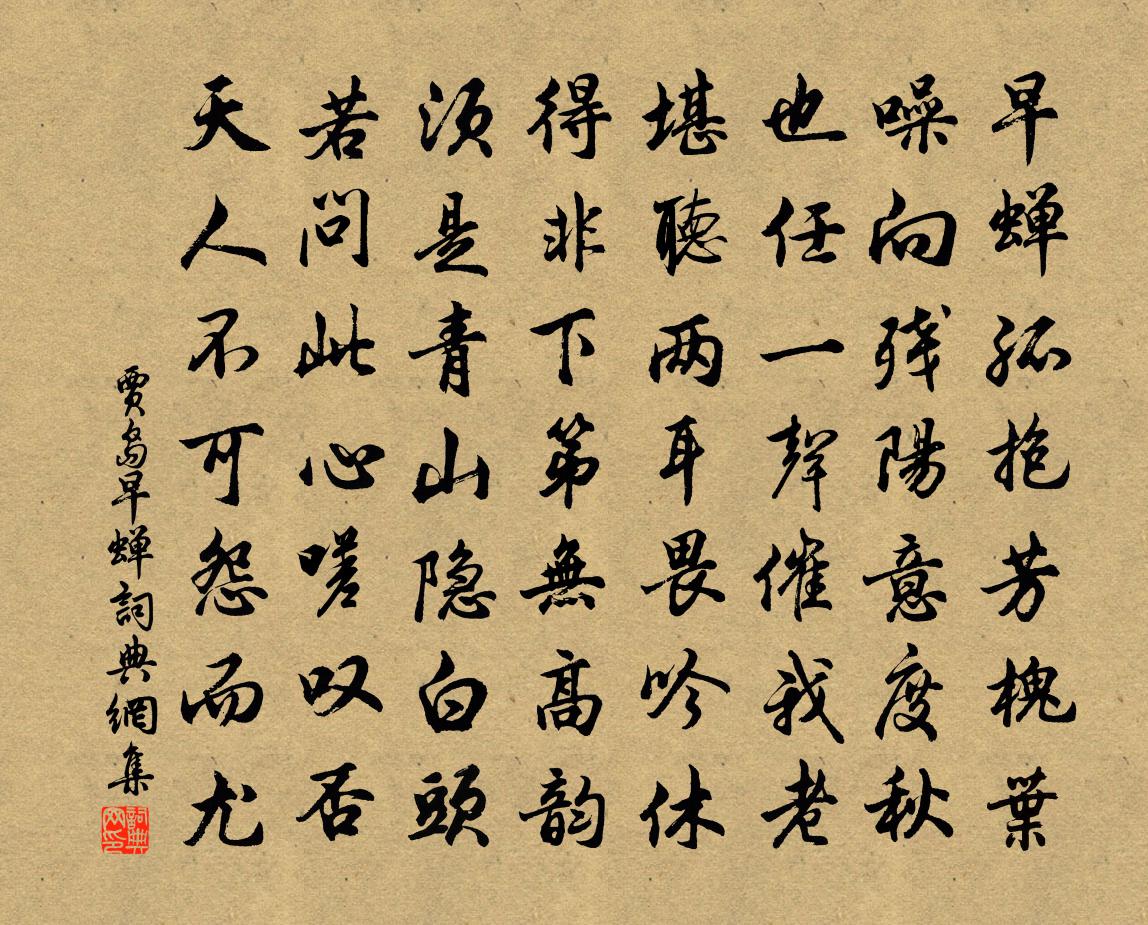 早蝉孤抱芳槐葉
噪向残陽意度秋
也任一聲催我老
堪聽两耳畏吟休
得非下第無高韵
须是青山隐白頭
若问此心嗟叹否
天人不可怨而尤
賈島早蝉詞典網集
詞典网印